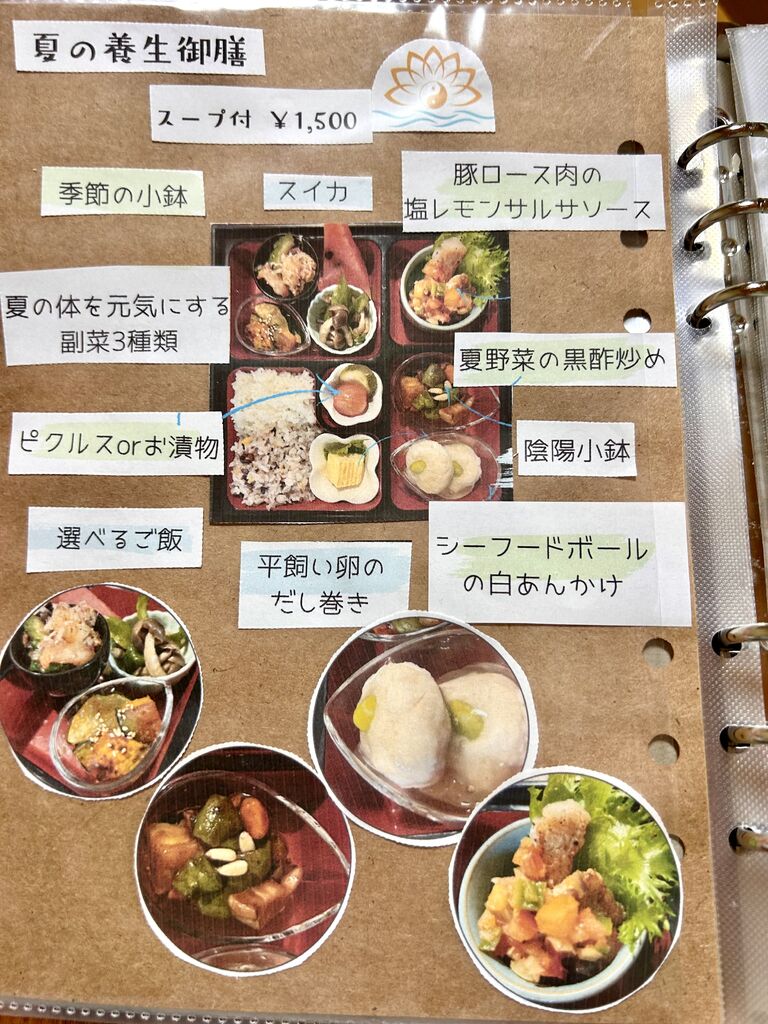 夏の養生御膳
スープ付 ¥1,500
季節の小鉢
スイカ
豚ロース肉の
塩レモンサルサソース
夏の体を元気にする
副菜3種類
夏野菜の黒酢炒め
ピクルスorお漬物
陰陽小鉢
選べるご飯
平飼い卵の
だし巻き
シーフードボール
の白あんかけ